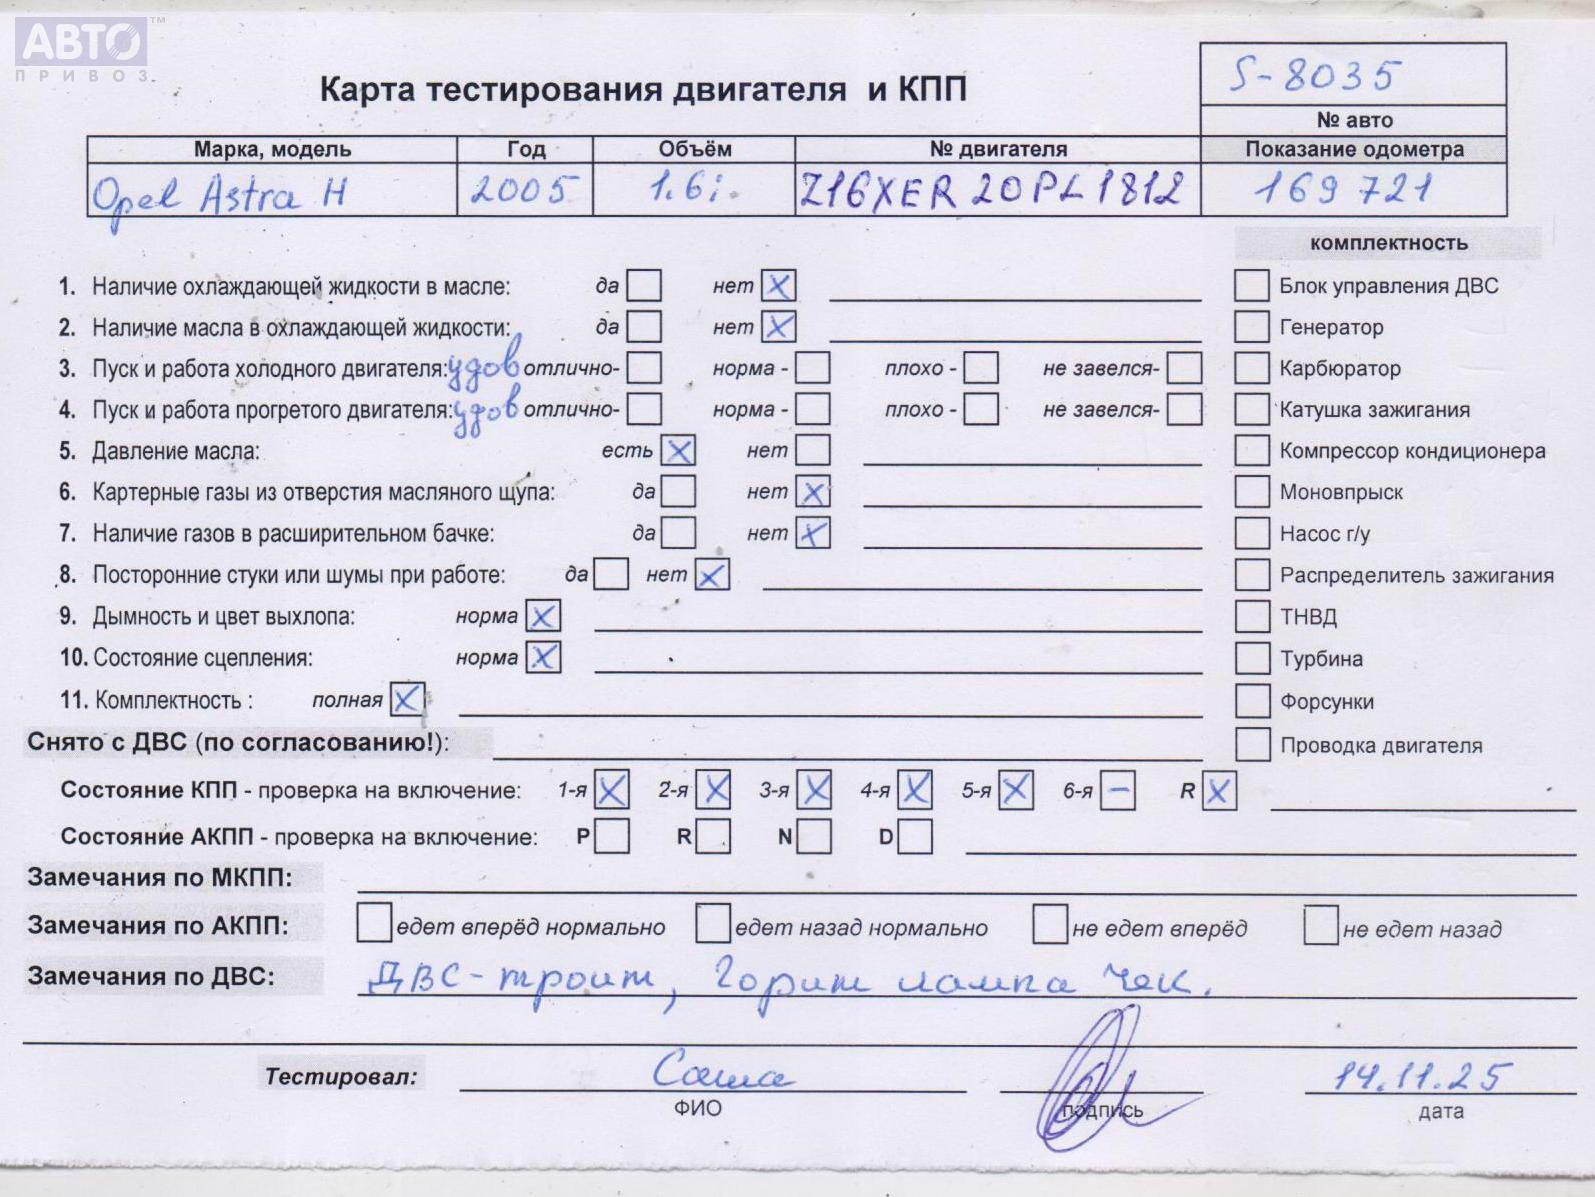 АВТО ™
ПРИВОЗ
S-8035
Карта тестирования двигателя и КПП
№ авто
Марка, модель Год Объём № двигателя Показание одометра
Opel Astra H 2005 1.6i. Z16XER 20PL1812 169 721
комплектность
1. Наличие охлаждающей жидкости в масле: да нет X Блок управления ДВС
2. Наличие масла в охлаждающей жидкости: да нет X Генератор
3. Пуск и работа холодного двигателя: удов отлично- норма - плохо - не завелся- Карбюратор
4. Пуск и работа прогретого двигателя: удов отлично- норма - плохо - не завелся- Катушка зажигания
5. Давление масла: есть X нет Компрессор кондиционера
6. Картерные газы из отверстия масляного щупа: да нет X Моновпрыск
7. Наличие газов в расширительном бачке: да нет X Насос г/у
8. Посторонние стуки или шумы при работе: да нет X Распределитель зажигания
9. Дымность и цвет выхлопа: норма X ТНВД
10. Состояние сцепления: норма X Турбина
11. Комплектность : полная X Форсунки
Снято с ДВС (по согласованию!): Проводка двигателя
Состояние КПП - проверка на включение: 1-я X 2-я X 3-я X 4-я X 5-я X 6-я – R X
Состояние АКПП - проверка на включение: P R N D
Замечания по МКПП:
Замечания по АКПП: едет вперёд нормально едет назад нормально не едет вперёд не едет назад
Замечания по ДВС: ДВС-троит, Горит лампа чек.
Тестировал: Саша 14.11.25
ФИО подпись дата